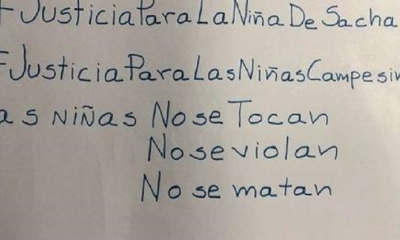 #JusticiaParaLaNiñaDeSacha
#JusticiaParaLasNiñasCampesin
as NiÑas No se Tocan
No se violan
No se matan